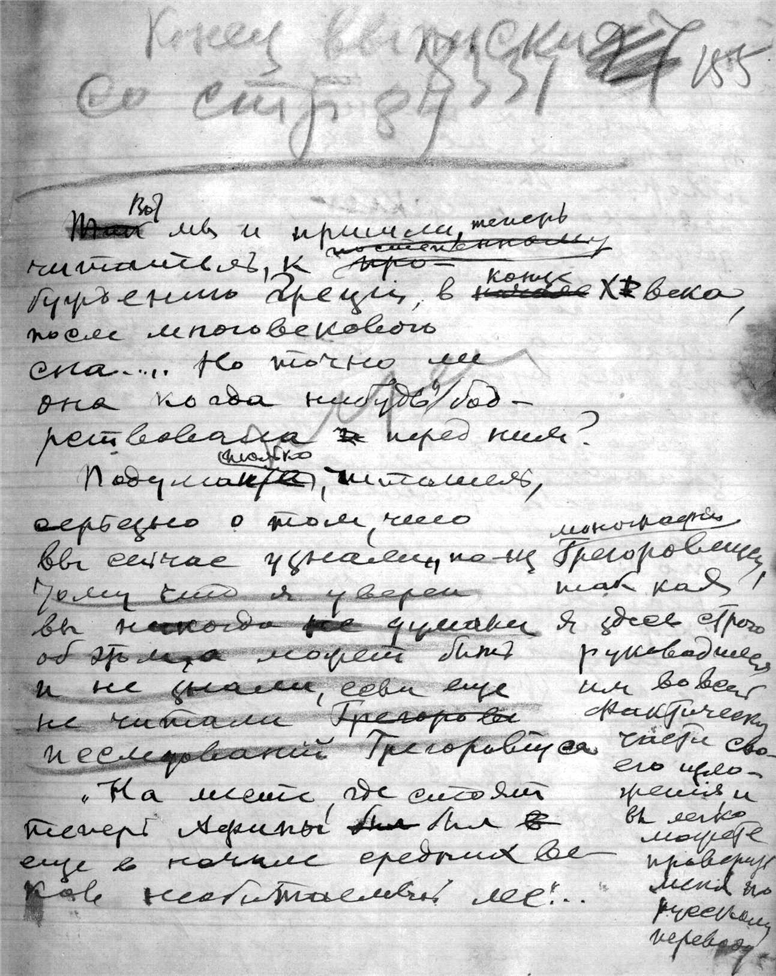 Конец выписки
155
со стр 84
Вот
мы и пришли, теперь
читатель, к
буждению Греции, в конце X века,
после многовекового
сна.... Но точно ли
она когда нибудь бод-
рствовала перед ним?
только
Подумайте, читатель,
серьезно о том, что
вы сейчас узнали, по-
чему что я уверен
вы никогда не думали
об этом, а может быть
и не знали, если еще
не читали Грегорови
исследований Грегоровиуса
"На месте, где стоят
теперь Афины был
еще в начале средних ве-
ков необитаемый лес"...
монографии
Грегоровиуса,
так как
я здесь строго
руководился
им во всей
фактической
части сво-
его изло-
жения и
вы легко
можете
проверить
меня по
русскому
переводу